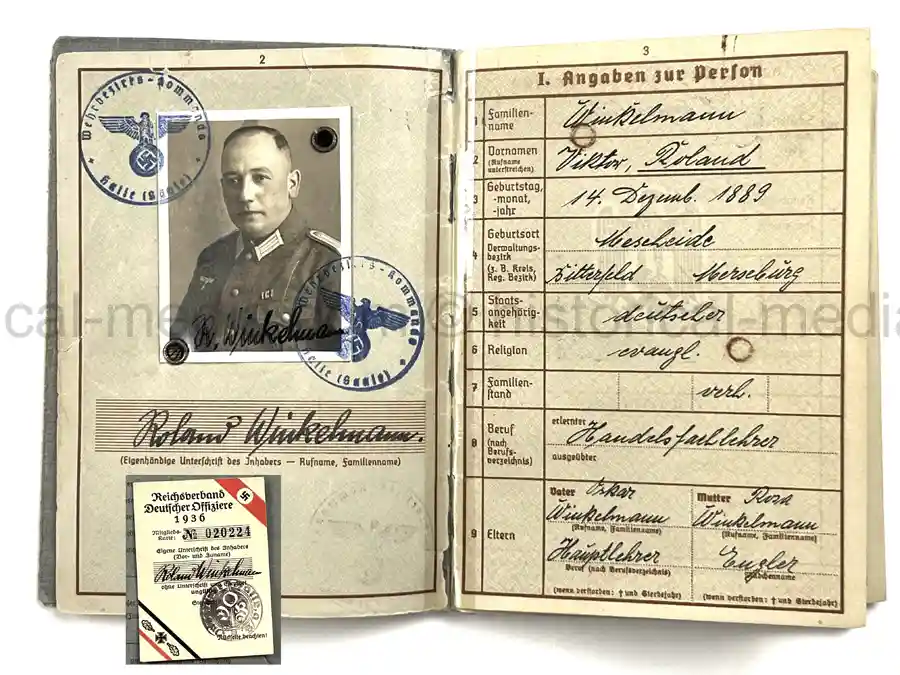 2
Wehrbezirks-Kommando
Halle (Saale)
R. Winkelmann
Wehrbezirks-Kommando
Halle (Saale)
Roland Winkelmann.
(Eigenhändige Unterschrift des Inhabers — Rufname, Familienname)
Reichsverband
Deutscher Offiziere
1936
Mitglieds-
Karte: № 020224
Eigene Unterschrift des Inhabers
(Vor- und Zuname)
Roland Winkelmann
ohne Unterschrift
Rückseite beachten!
3
I. Angaben zur Person
1 Familien-
name
Winkelmann
2 Vornamen
(Rufname
unterstreichen)
Viktor, Roland
3 Geburtstag,
-monat,
-jahr
14. Dezemb. 1889
4 Geburtsort
Verwaltungs-
bezirk
(z. B. Kreis,
Reg. Bezirk)
Mescheide
Bitterfeld Merseburg
5 Staats-
angehörig-
keit
deutscher
6 Religion
evangl.
7 Familien-
stand
verh.
8 Beruf
(nach
Berufs-
verzeichnis)
erlernter
Handelsfachlehrer
ausgeübter
9 Eltern
Vater Oskar
Winkelmann
(Rufname, Familienname)
Hauptlehrer
Beruf (nach Berufsverzeichnis)
(wenn verstorben: † und Sterbejahr)
Mutter Rosa
Winkelmann
(Rufname, Familienname)
Engler
Mädchenname
(wenn verstorben: † und Sterbejahr)
cal-me © historical-media